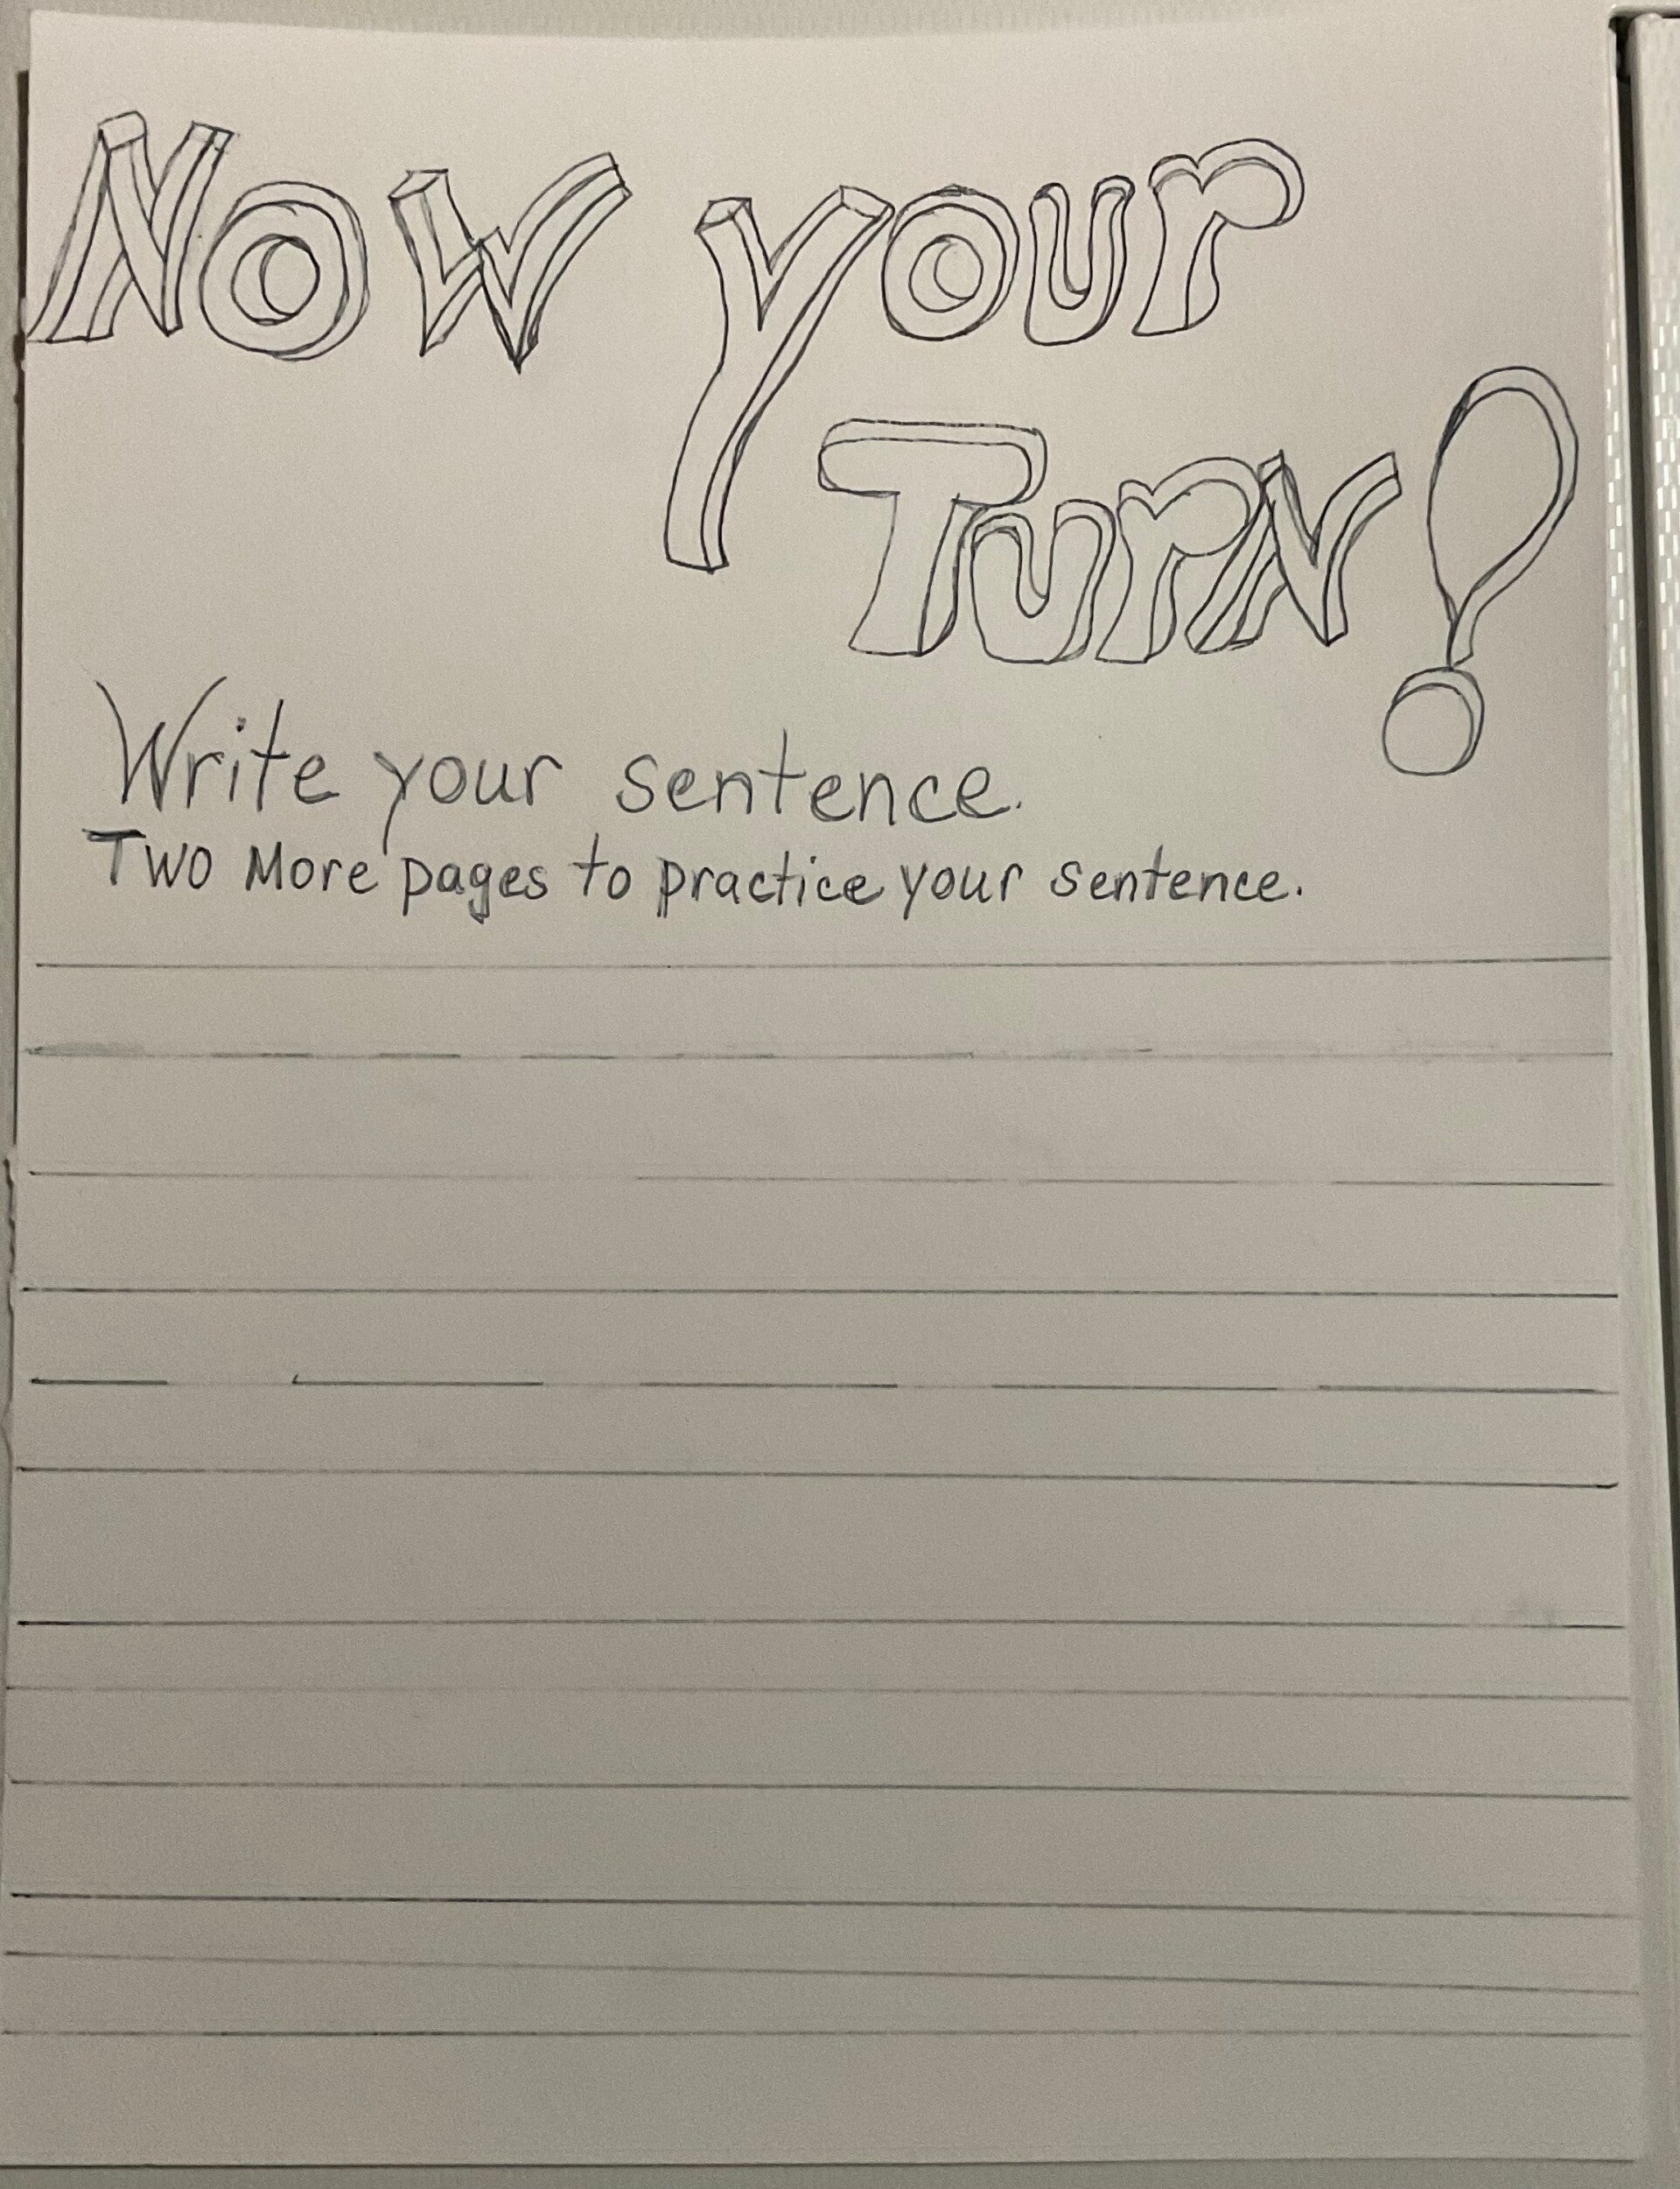 Now your
Turn!
Write your sentence.
Two More pages to practice your sentence.